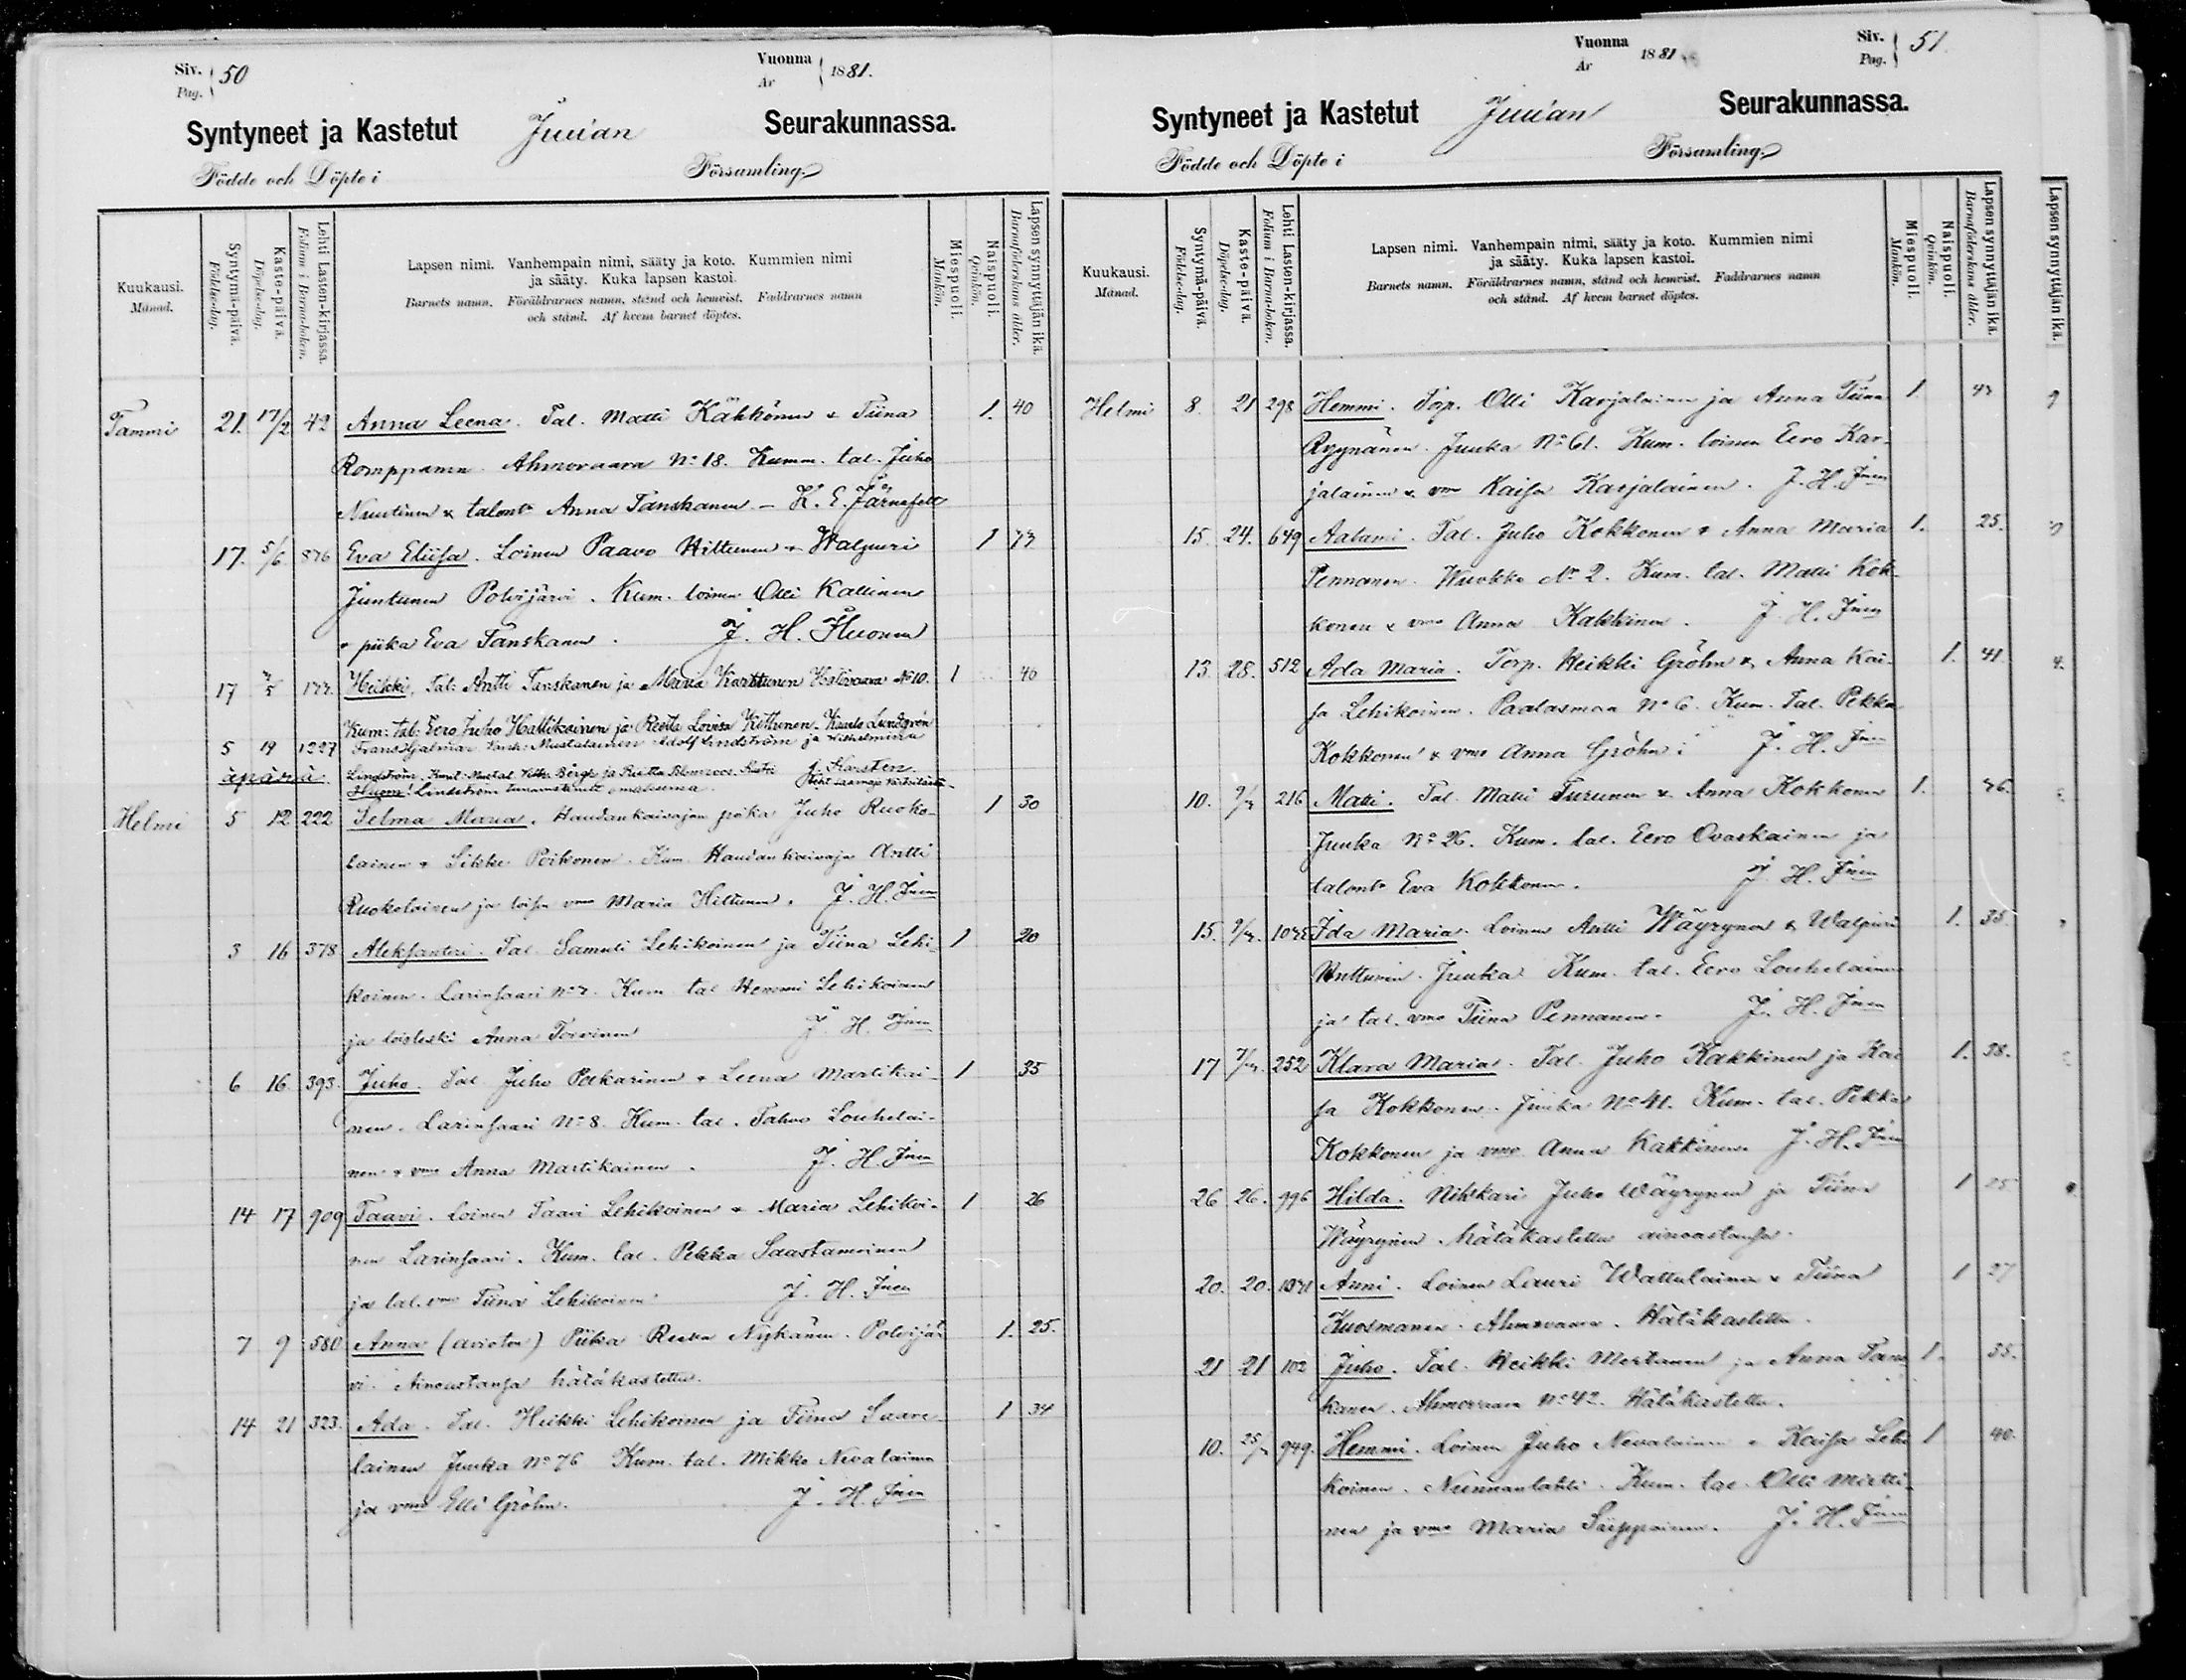 Siv. 50
Pag.
Vuonna 1881.
År
Syntyneet ja Kastetut Juuan Seurakunnassa.
Födde och Döpte i Församling.
Kuukausi.
Månad.
Syntymä-päivä.
Födelse-dag.
Kaste-päivä.
Döpelse-dag.
Lehti Lasten-kirjassa.
Folium i Barna-boken.
Lapsen nimi. Vanhempain nimi, sääty ja koto. Kummien nimi
ja sääty. Kuka lapsen kastoi.
Barnets namn. Föräldrarnes namn, stånd och hemvist. Faddrarnes namn
och stånd. Af hvem barnet döptes.
Miespuoli.
Mankön.
Naispuoli.
Qvinkön.
Lapsen synnyttäjän ikä.
Barnaföderskans ålder.
Tammi 21. 17/2 42 Anna Leena. Tal. Matti Kähkönen & Tiina 1. 40
Romppanen. Ahmovaara No 18. Kumm. tal. Juho
Nuutinen & talont. Anna Tanskanen - K. E. Järnefelt
17. 5/6 876 Eva Eliisa. Loinen Paavo Hiltunen & Walpuri 1
Juntunen Polvijärvi. Kum. loinen Olli Kallinen
& piika Eva Tanskanen. J. H.
17 Heikki, Tal. Antti Tanskanen ja Maria Karttunen No 10. 1 40
Kum. tal. Eero Juho Hallikainen ja Reeta Lovisa Kettunen.
5 19 1227 Frans Hjalmar Adolf Lindström ja Wilhelmina
äpärä. Lindström, J. Karsten.
Huom! Lindström
Helmi 5 12 222 Selma Maria. Haudankaivajan poika Juho Ruoko- 1 30
lainen & Sikke Poikonen. Kum. Haudankaivaja Antti
Ruokolainen ja vmo Maria Hiltunen. J. H.
3 16 378 Aleksanteri. Tal. Samuli Lehikoinen ja Tiina Lehi- 1 20
koinen. Larinsaari No 7. Kum. tal Hemmi Lehikoinen
ja loisleski Anna Torvinen J. H.
6 16 393. Juho. Tal Juho Pekarinen & Leena Martikai- 1 35
nen. Larinsaari No 8. Kum. tal. Tahvo Louhelai-
nen & vmo Anna Martikainen. J. H.
14 17 909 Taavi. Loinen Taavi Lehikoinen & Maria Lehikoi- 1 26
nen Larinsaari. Kum. tal. Pekka Saastamoinen
ja tal. vmo Tiina Lehikoinen J. H.
7 9 580 Anna (avioton) Piika Reeta Nykänen. Polvijär- 1. 25.
vi. Ainoastansa hätäkastettu.
14 21 323. Ada. Tal. Heikki Lehikoinen ja Tiina Saare- 1 34
lainen Juuka No 76 Kum. tal. Mikko Nevalainen
ja vmo Elli Gröhn. J. H.
Vuonna 1881
År
Siv. 51.
Pag.
Syntyneet ja Kastetut Juuan Seurakunnassa.
Födde och Döpte i Församling.
Kuukausi.
Månad.
Syntymä-päivä.
Födelse-dag.
Kaste-päivä.
Döpelse-dag.
Lehti Lasten-kirjassa.
Folium i Barna-boken.
Lapsen nimi. Vanhempain nimi, sääty ja koto. Kummien nimi
ja sääty. Kuka lapsen kastoi.
Barnets namn. Föräldrarnes namn, stånd och hemvist. Faddrarnes namn
och stånd. Af hvem barnet döptes.
Miespuoli.
Mankön.
Naispuoli.
Qvinkön.
Lapsen synnyttäjän ikä.
Barnaföderskans ålder.
Lapsen synnyttäjän ikä.
Helmi 8. 21 298 Hemmi. Torp. Olli Karjalainen ja Anna Tiina 1.
Ryynänen. Juuka No 61. Kum. loinen Eero Kar-
jalainen & vmo Kaisa Karjalainen. J. H.
15. 24. 649 Aatami. Tal. Juho Kokkonen & Anna Maria 1. 25.
Pennanen. Wuokko No 2. Kum. tal. Matti Kok-
konen & vmo Anna Kakkinen. J. H.
13. 28. 512 Ada Maria. Torp. Heikki Gröhn & Anna Kai- 1. 41.
sa Lehikoinen. Paalasmaa No 6. Kum. Tal. Pekka
Kokkonen & vmo Anna Gröhn. J. H.
10. 216 Matti. Tal. Matti Turunen & Anna Kokkonen 1.
Juuka No 26. Kum. tal. Eero Ovaskainen ja
talont. Eva Kokkonen. J. H.
15. Ida Maria. Loinen Antti Wäyrynen & Walpuri 1. 35.
Juuka Kum. tal. Eero Louhelainen
ja tal. vmo Tiina Pennanen. J. H.
17 252 Klara Maria. Tal. Juho Kakkinen ja Kai- 1. 38.
sa Kokkonen. Juuka No 41. Kum. tal. Pekka
Kokkonen ja vmo Anna Kakkinen J. H.
26 26. 996 Hilda. Nihkari Juho Wäyrynen ja Tiina 1 25
Wäyrynen. Hätäkastettu ainoastansa.
20. 20. Anni. Loinen Lauri Wattulainen & Tiina 1 27
Kuosmanen. Ahmovaara. Hätäkastettu.
21 21 102 Juho. Tal. Heikki Mertanen ja Anna Tans- 1.
kanen. Ahmovaara No 42. Hätäkastettu.
10. 949. Hemmi. Loinen Juho Nevalainen & Kaisa Lehi- 1 40.
koinen. Nunnanlahti. Kum. tal. Olli Martti-
nen ja vmo Maria J. H.